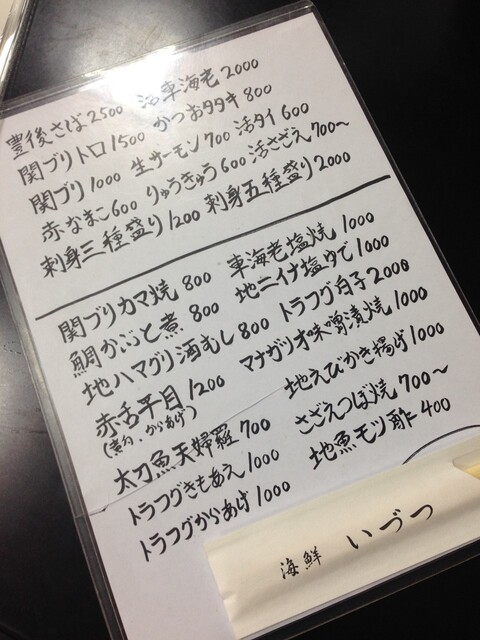 豊後さば2500 活車海老2000
関ブリトロ1500 かつおタタキ800
関ブリ1000 生サーモン700 活タイ600
赤なまこ600 りゅうきゅう600 活さざえ700〜
刺身三種盛り1200 刺身五種盛り2000
関ブリカマ焼800 車海老塩焼1000
鯛かぶと煮800 地ニイナ塩ゆで1000
地ハマグリ酒むし800 トラフグ白子2000
赤舌平目1200 マナガツオ味噌漬焼1000
(煮付、からあげ) 地えびかき揚げ1000
太刀魚天婦羅700 さざえつぼ焼700〜
トラフグきもあえ1000 地魚モツ酢400
トラフグからあげ1000
海鮮 いづつ